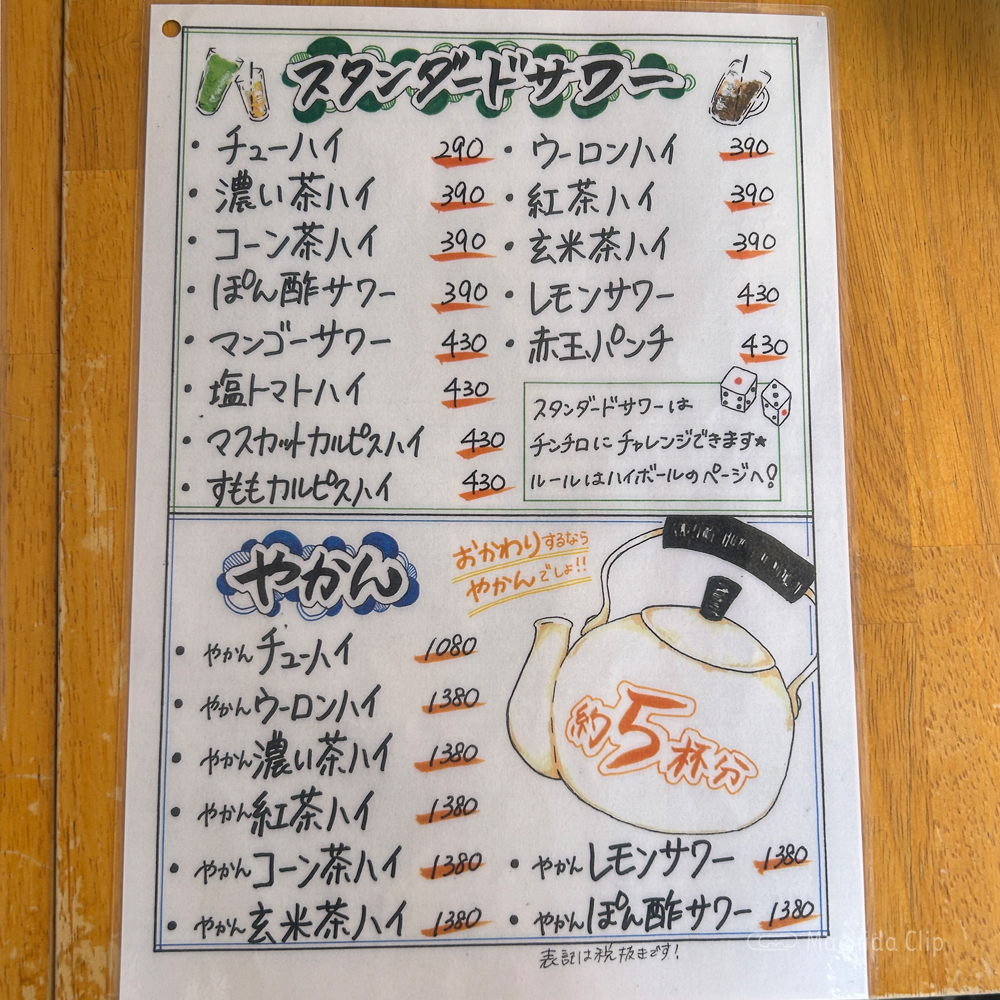 スタンダードサワー
・チューハイ 290
・濃い茶ハイ 390
・コーン茶ハイ 390
・ぽん酢サワー 390
・マンゴーサワー 430
・塩トマトハイ 430
・マスカットカルピスハイ 430
・すももカルピスハイ 430
・ウーロンハイ 390
・紅茶ハイ 390
・玄米茶ハイ 390
・レモンサワー 430
・赤玉パンチ 430
スタンダードサワーは
チンチロにチャレンジできます★
ルールはハイボールのページへ!
やかん
おかわりするなら
やかんでしょ!!
・やかんチューハイ 1080
・やかんウーロンハイ 1380
・やかん濃い茶ハイ 1380
・やかん紅茶ハイ 1380
・やかんコーン茶ハイ 1380
・やかん玄米茶ハイ 1380
約5杯分
・やかんレモンサワー 1380
・やかんぽん酢サワー 1380
表記は税抜きです!
Machida Clip